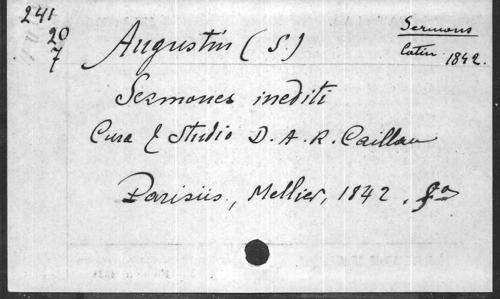 241
20
7
Augustin (S.)
Sermons
latin 1842.
Sermones inediti
Cura & Studio D. A. R. Caillau
Parisiis, Mellier, 1842. fo